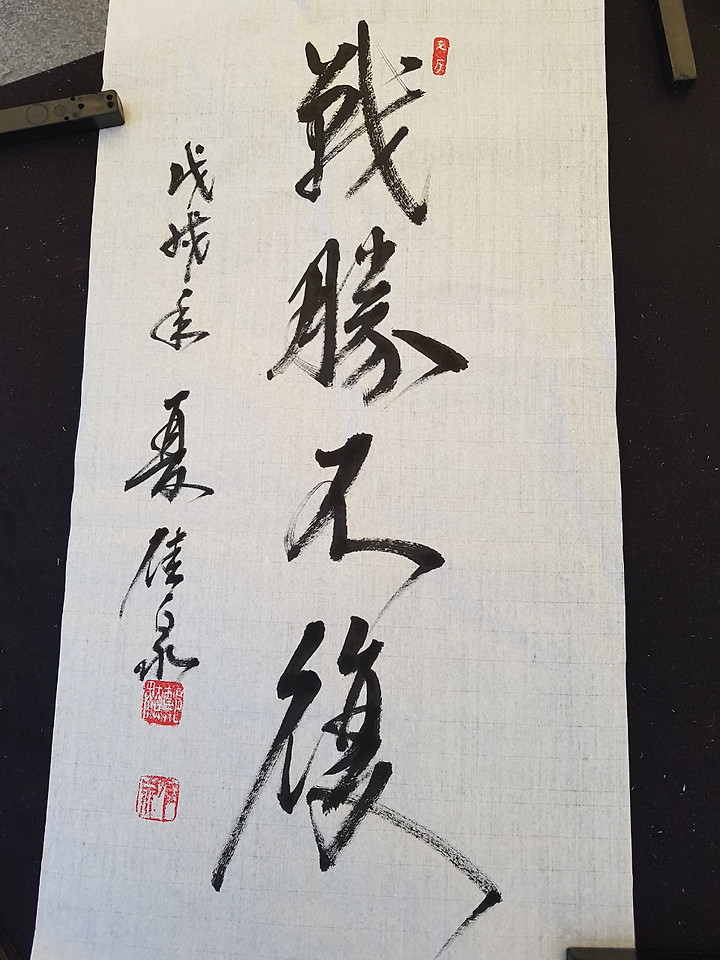 戰勝不復
戊戌年夏泉